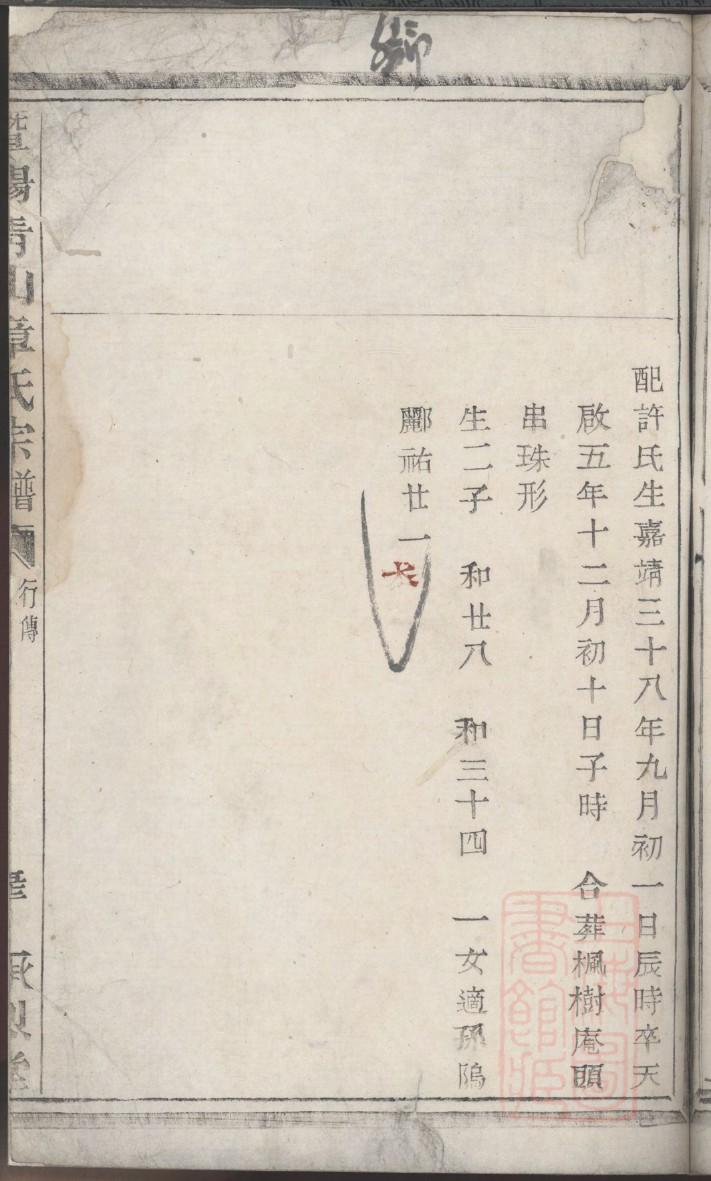 配許氏生嘉靖三十八年九月初一日辰時卒天
啟五年十二月初十日子時 合葬楓樹庵頭
串珠形
生二子 和廿八 和三十四 一女適孫隖
酈祐廿一
暨陽青山章氏宗譜
行傳
上海圖書館藏